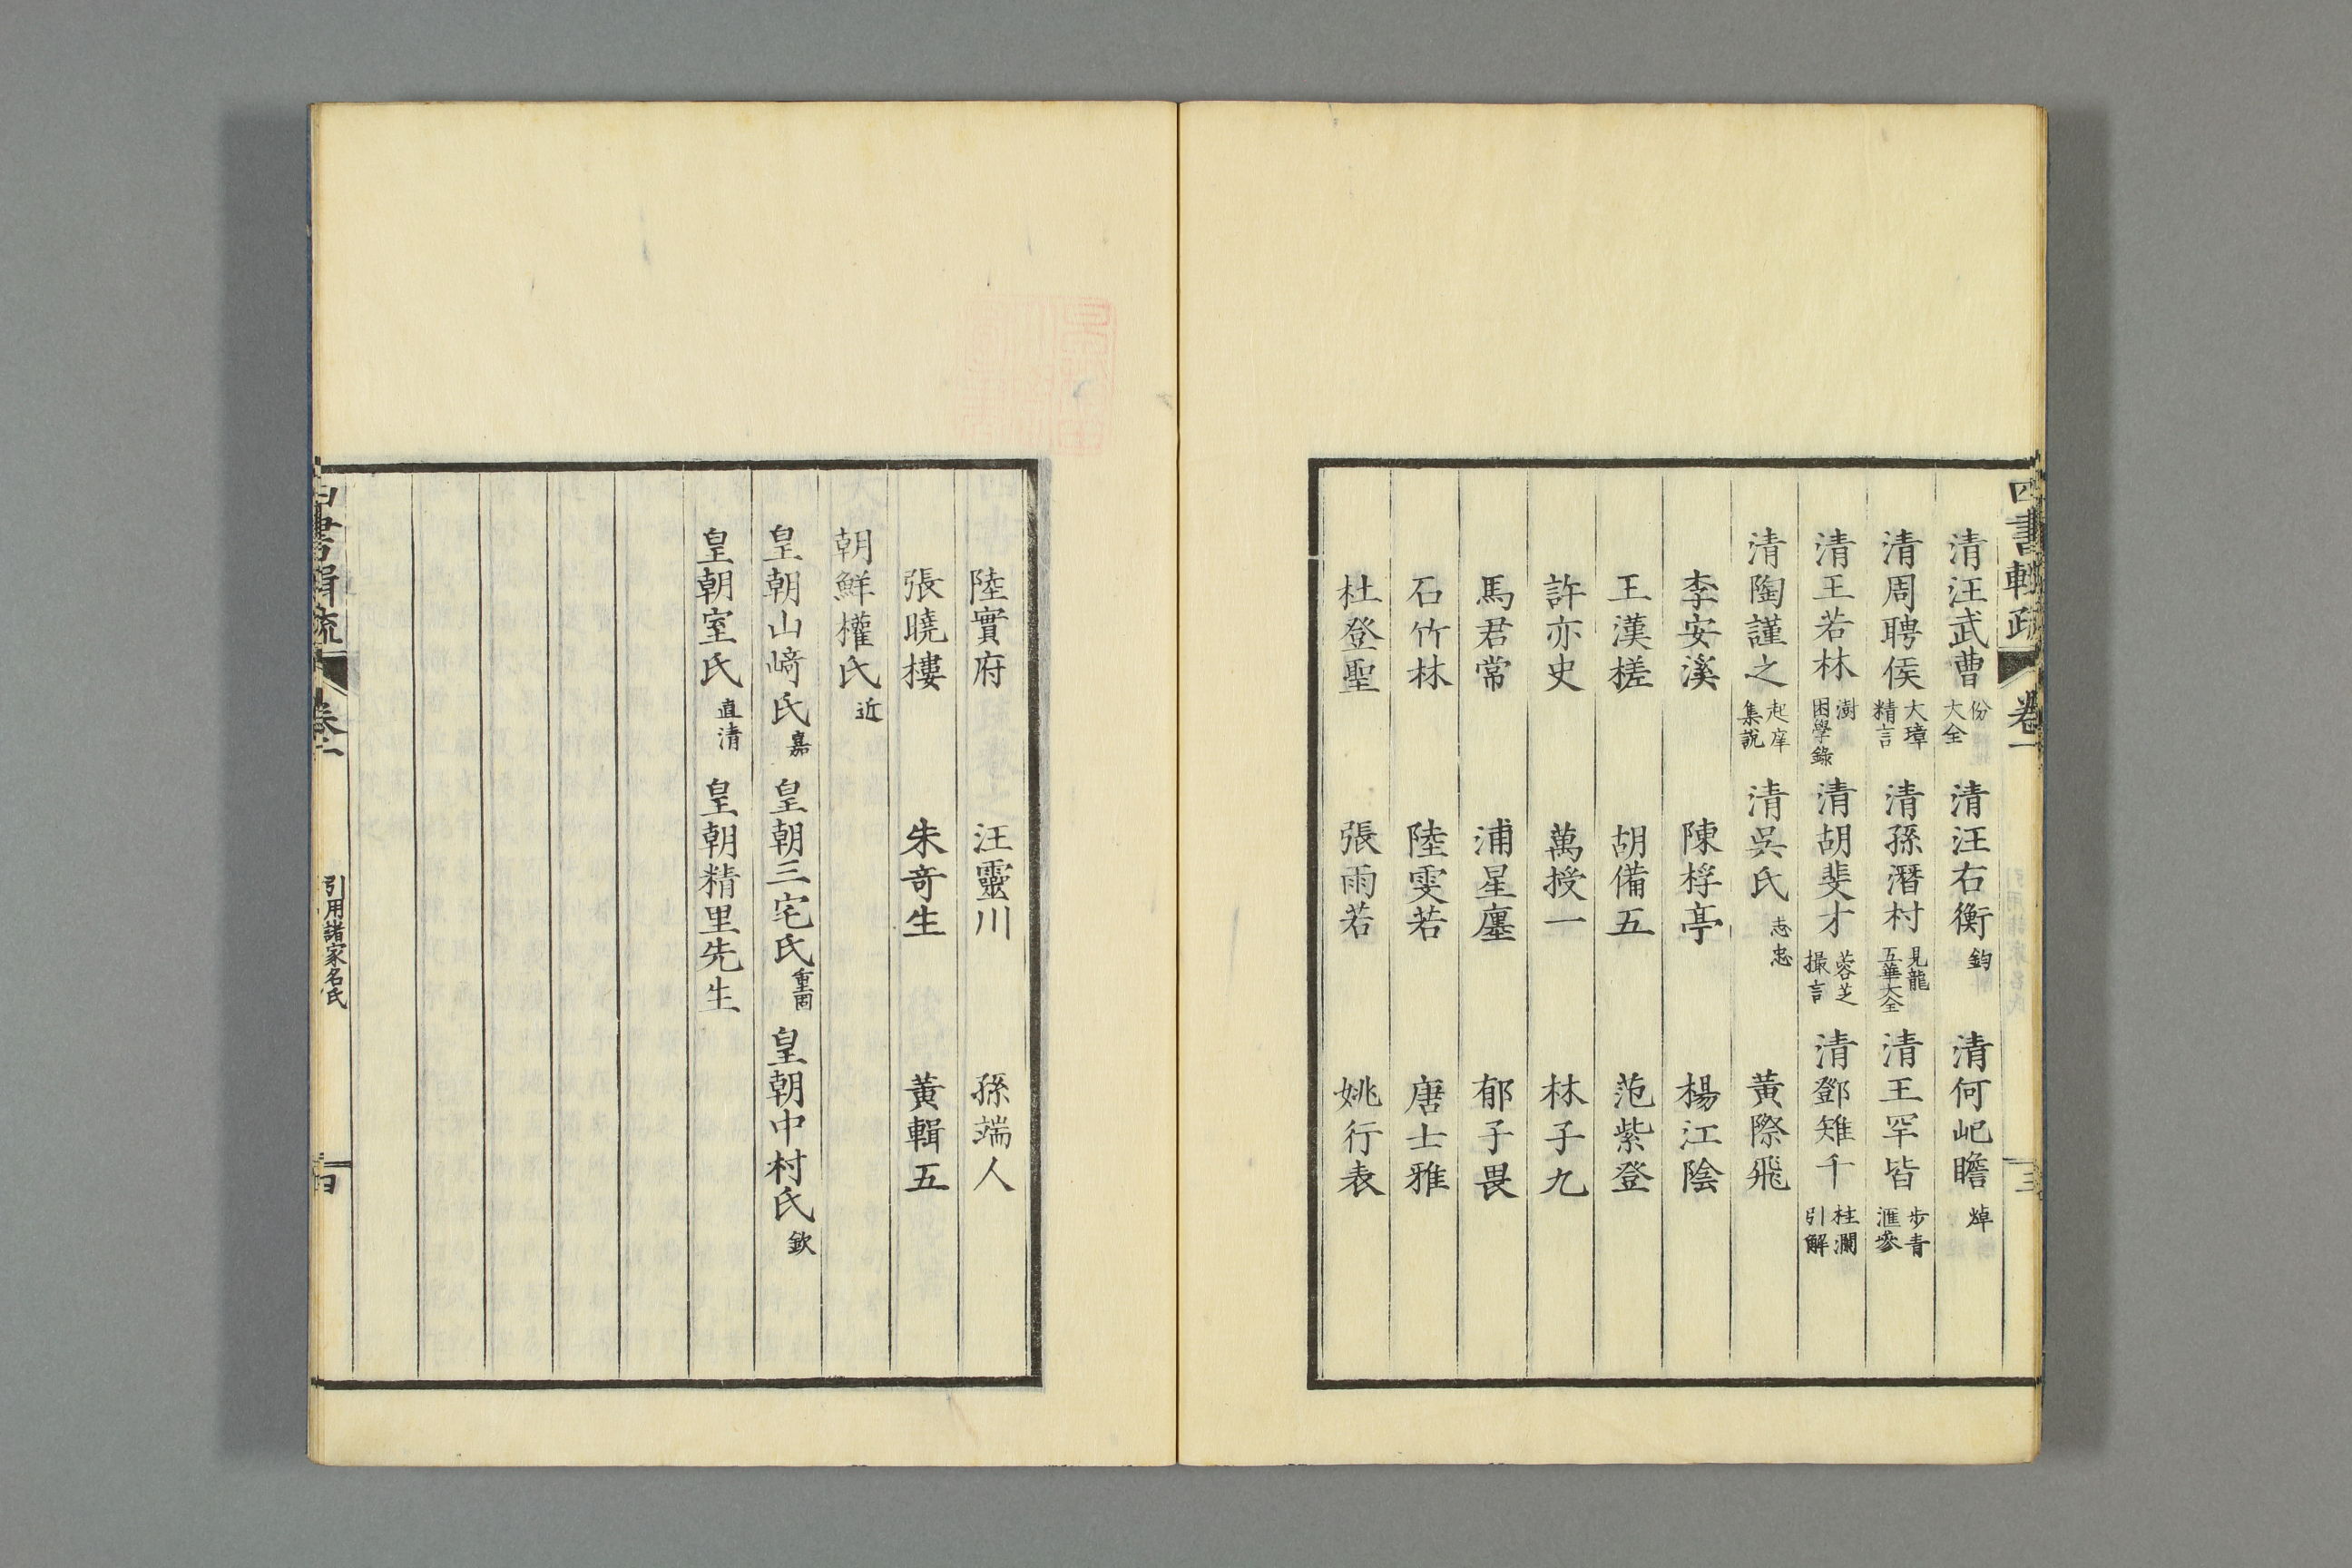 四書輯疏 卷一 三
清汪武曹 份 大全 清汪右衡 鈞 清何屺瞻 焯
清周聘侯 大璋 精言 清孫潛村 見龍 五華大全 清王罕皆 步青 滙參
清王若林 澍 困學錄 清胡斐才 蓉芝 撮言 清鄧雉千 柱瀾 引解
清陶謹之 起庠 集說 清吳氏 志忠 黃際飛
李安溪 陳桴亭 楊江陰
王漢槎 胡備五 范紫登
許亦史 萬授一 林子九
馬君常 浦星廛 郁子畏
石竹林 陸雯若 唐士雅
杜登聖 張雨若 姚行表
陸實府 汪靈川 孫端人
張曉樓 朱奇生 黃輯五
朝鮮權氏 近
皇朝山﨑氏 嘉 皇朝三宅氏 重固 皇朝中村氏 欽
皇朝室氏 直清 皇朝精里先生
四書輯疏 卷一 引用諸家名氏 四